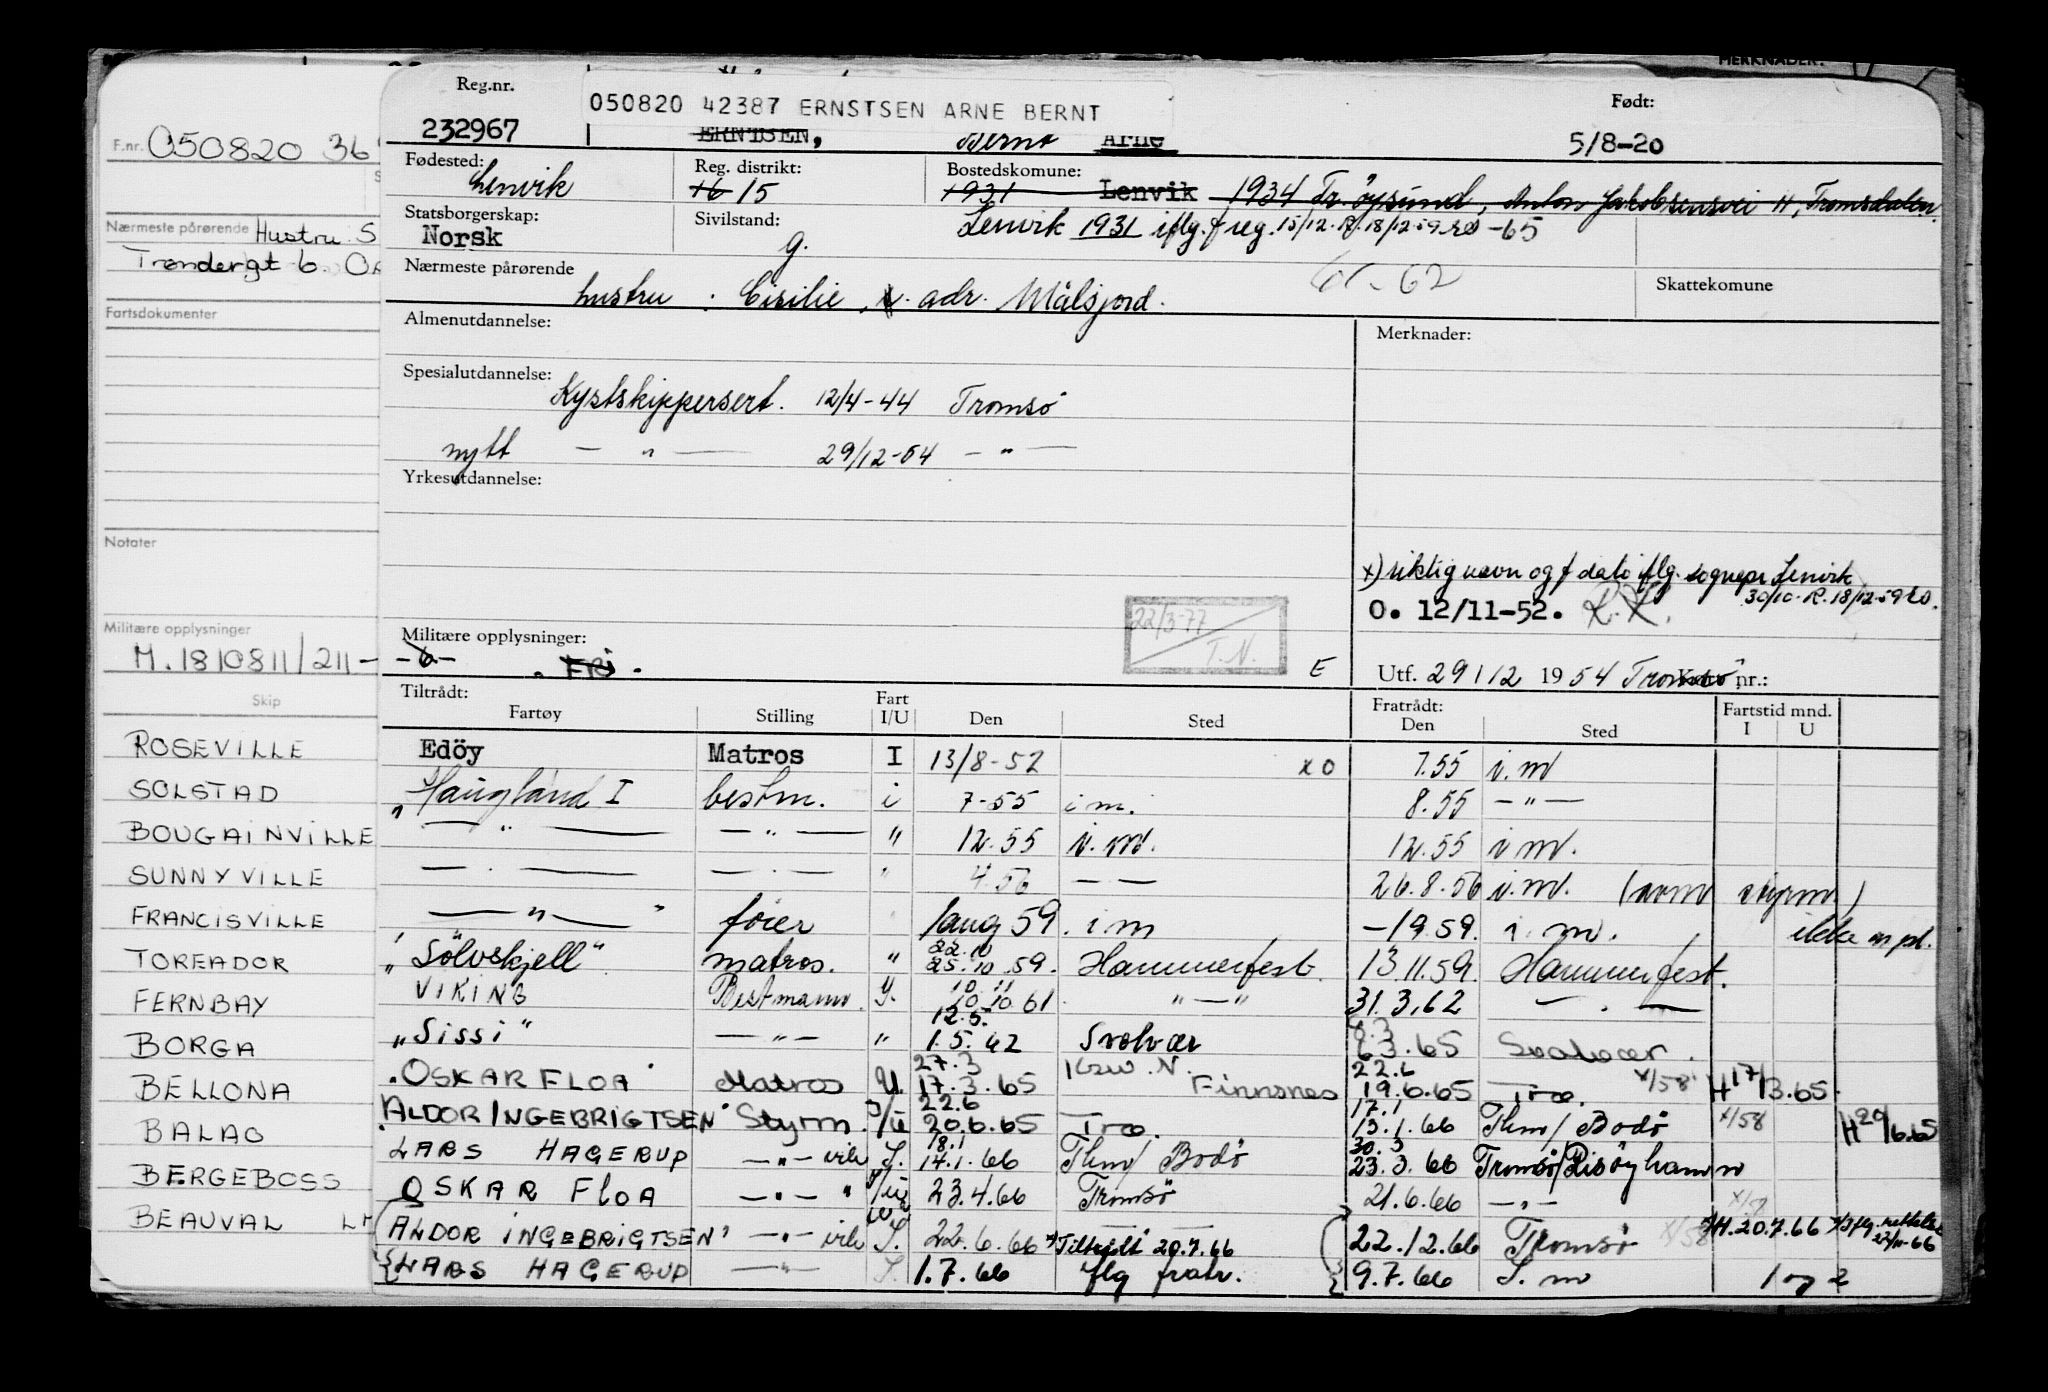 MERKNADER:
F.nr. 050820 36
Nærmeste pårørende Hustru S
Trøndergt 6. O
Fartsdokumenter
Notater
Militære opplysninger
M. 1810811/211-
Skip
ROSEVILLE
SOLSTAD
BOUGAINVILLE
SUNNYVILLE
FRANCISVILLE
TOREADOR
FERNBAY
BORGA
BELLONA
BALAO
BERGEBOSS
BEAUVAL
Reg.nr.
232967
050820 42387 ERNSTSEN ARNE BERNT
ERNTSEN, Bernt Arne
Født:
5/8-20
Fødested: Lenvik
Reg. distrikt: 16 15
Bostedskomune: 1931 Lenvik 1934 Tr. öysund, Anton Jakobsensvei 11, Tromsdalen
Statsborgerskap: Norsk
Sivilstand: g.
Lenvik 1931 iflg. f reg. 15/12. R. 18/12-59 -65
61-62
Nærmeste pårørende hustru : Cisilie, adr. Målsjord.
Skattekomune
Almenutdannelse:
Merknader:
Spesialutdannelse: Kystskippersert. 12/4-44 Tromsö
nytt — " — 29/12-54 — " —
Yrkesutdannelse:
x) riktig navn og f dato iflg. sognepr Lenvik
30/10. R. 18/12-59
O. 12/11-52.
22/3-77
T.N.
Militære opplysninger:
-6- . FRI .
E
Utf. 29/12 1954 Tromsö, nr.:
Tiltrådt:
Fartøy Stilling Fart I/U Den Sted
Fratrådt: Den Sted Fartstid mnd. I U
Edöy Matros I 13/8-52 x0 7.55 i.m
"Haugland I bestm. i 7-55 i m. 8.55 — " —
— " — — " — " 12.55 i.m. 12.55 i m.
— . — — . — " 4.56 — — 26.8.56 i.m. (som styrm)
— " — föier 1 aug 59. i m -19.59. i. m. ikke
"Sölvskjell" matros. " 22.10 25.10.59. Hammerfest. 13.11.59. Hammerfest.
VIKING Bestmann. I. 10.11 10.10.61 " — " 31.3.62 — . —
"Sissi" — " — " 12.5. 1.5.62 Svolvær 8.3 6.3.65 Svolvær.
"OSKAR FLOA" Matros U. 27.3 17.3.65 Finnsnes 22.6 19.6.65 Trø. x/58 H 17/3.65
"ALDOR INGEBRIGTSEN" Styrm. I/U 22.6 20.6.65 Trø. 17.1 13.1.66 Thm/Bodö x/58 H 29/6.65
LARS HAGERUP — " — vik I. 18.1 14.1.66 Thm/Bodö 30.3 23.3.66 Tromsö/Risöyhamn
OSKAR FLOA — " — " I/U 23.4.66 Tromsö 21.6.66 — " —
ALDOR INGEBRIGTSEN" — " — vik I. 22.6.66 Tiltrådt 20.7.66 22.12.66 Tromsö x/58 H. 20.7.66
LARS HAGERUP — " — I. 1.7.66 flg fratr. 9.7.66 I. m 1 og 2